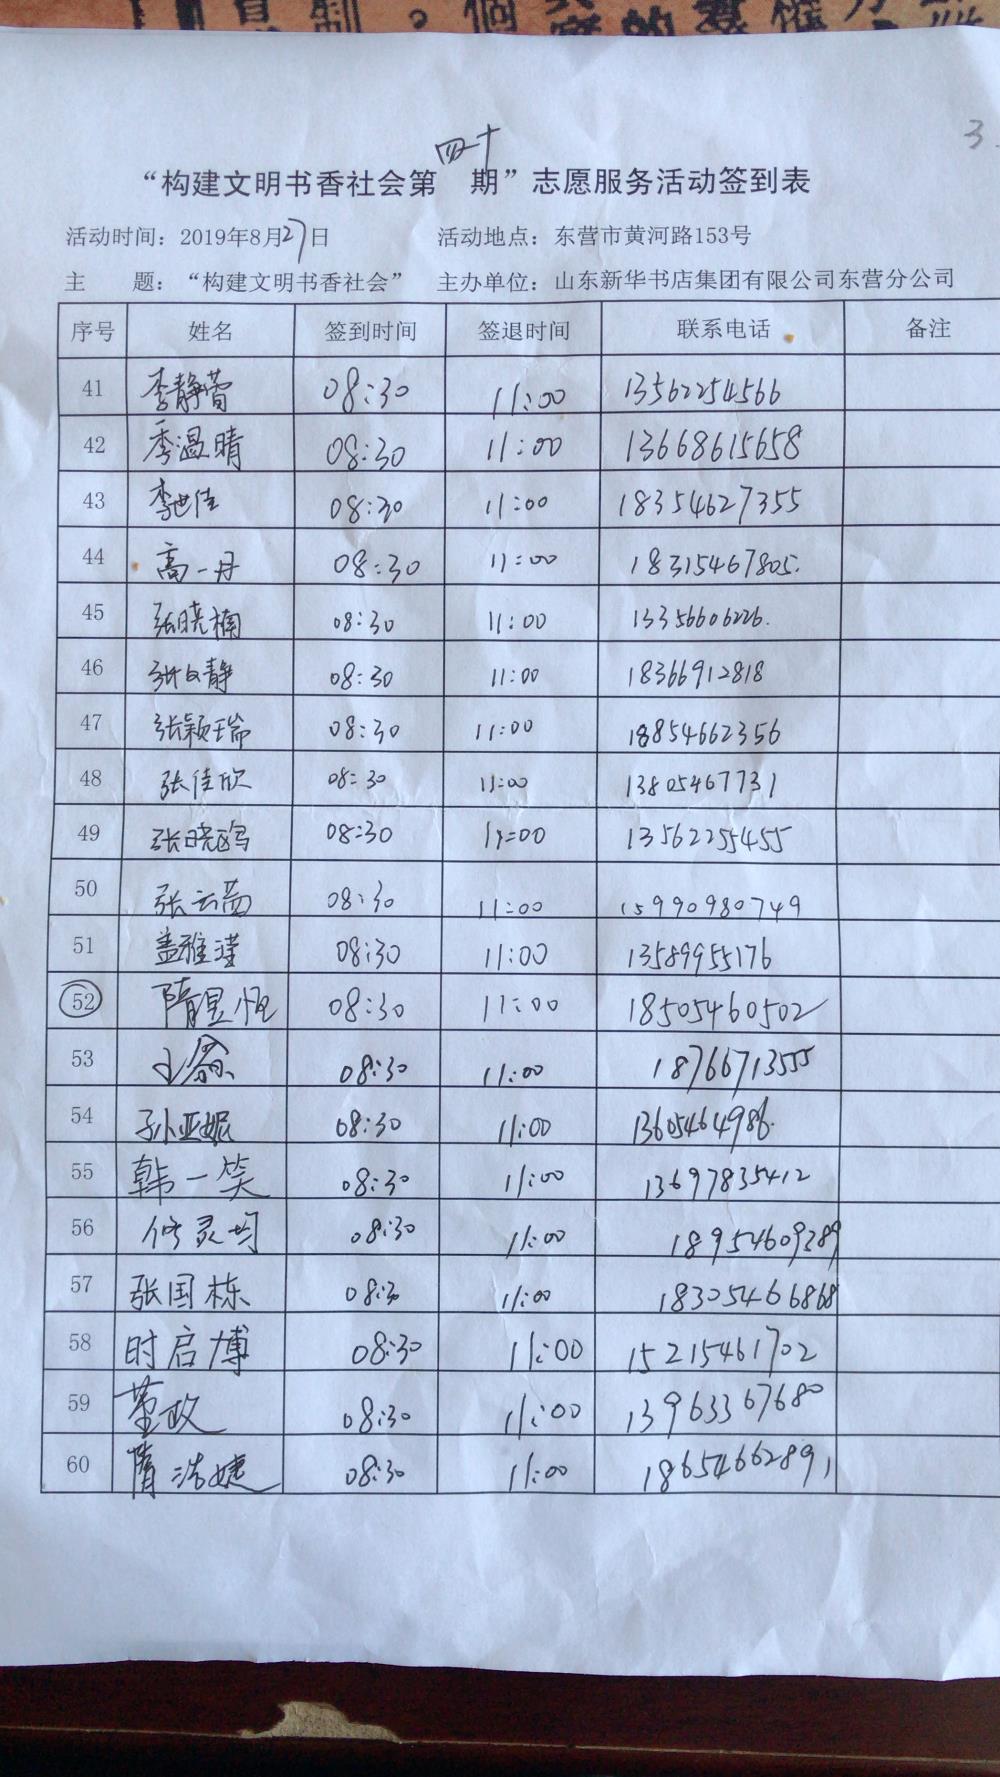 3
“构建文明书香社会第四十期”志愿服务活动签到表
活动时间：2019年8月27日 活动地点：东营市黄河路153号
主 题：“构建文明书香社会” 主办单位：山东新华书店集团有限公司东营分公司
序号 姓名 签到时间 签退时间 联系电话 备注
41 李静萱 08:30 11:00 13562254566
42 季温晴 08:30 11:00 13668615658
43 李世佳 08:30 11:00 18354627355
44 高一丹 08:30 11:00 18315467805.
45 张晓楠 08:30 11:00 13356606226.
46 张文静 08:30 11:00 18366912818
47 张颖瑞 08:30 11:00 18854662356
48 张佳欣 08:30 11:00 13805467731
49 张晓鸥 08:30 11:00 13562255455
50 张云茜 08:30 11:00 15990980749
51 盖雅滢 08:30 11:00 13589955176
52 隋昱恒 08:30 11:00 18505460502
53 08:30 11:00 18766713555
54 孙亚妮 08:30 11:00 13605464986.
55 韩一笑 08:30 11:00 13697835412
56 修灵均 08:30 11:00 18954609289
57 张国栋 08:30 11:00 18305466868
58 时启博 08:30 11:00 15215461702
59 董政 08:30 11:00 13963367680
60 隋浩婕 08:30 11:00 18654662891